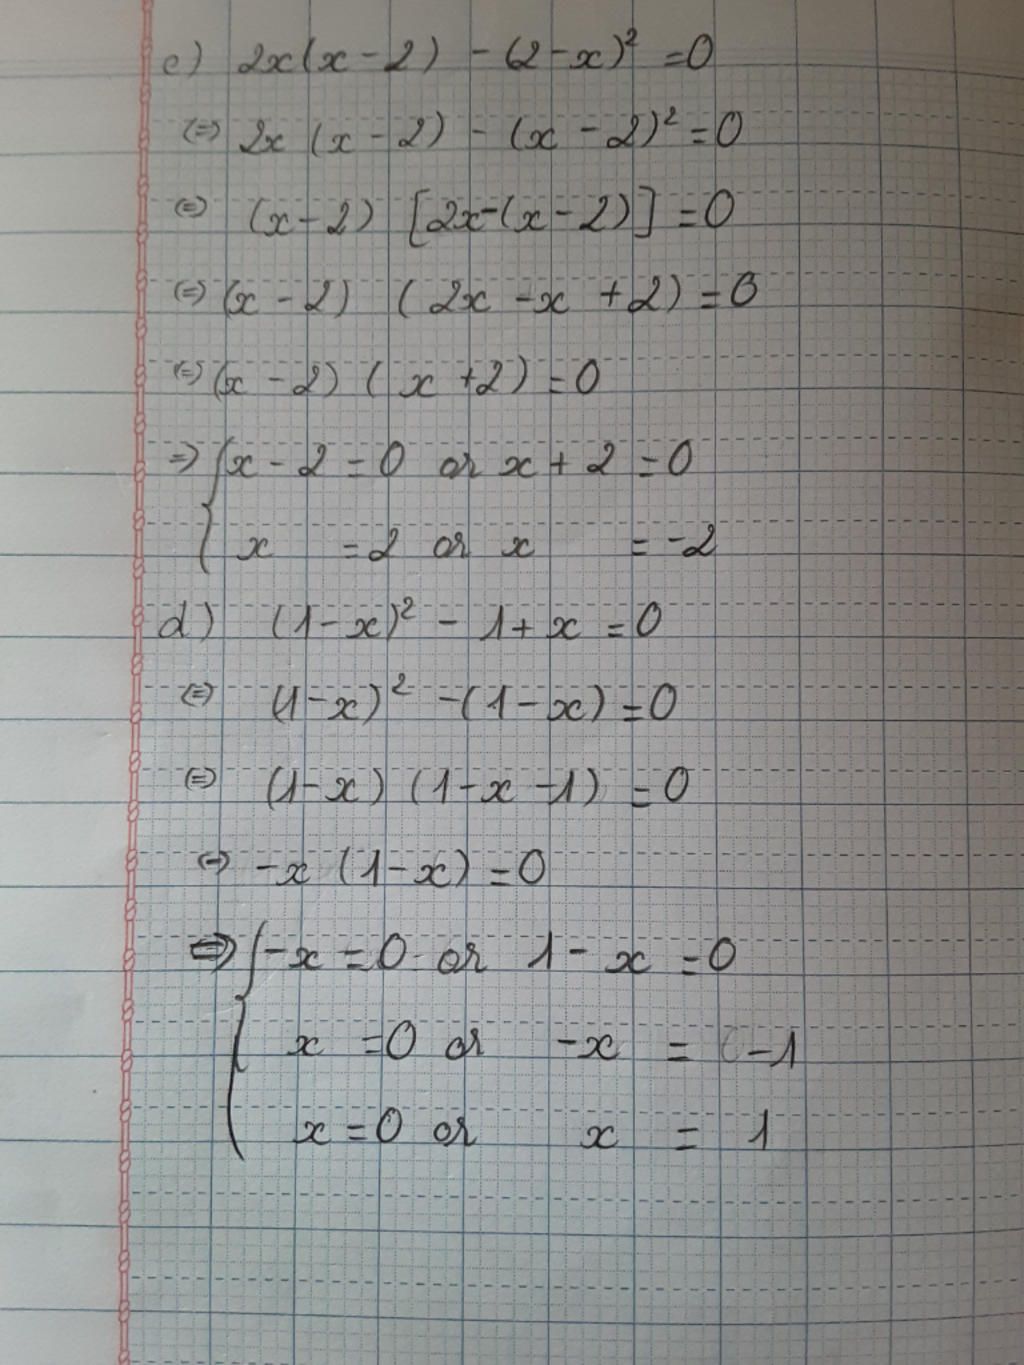 c) 2x(x - 2) - (2 - x)² = 0
(=) 2x (x - 2) - (x - 2)² = 0
(=) (x - 2) [2x - (x - 2)] = 0
(=) (x - 2) (2x - x + 2) = 0
(=) (x - 2) (x + 2) = 0
=> { x - 2 = 0 or x + 2 = 0
x = 2 or x = -2
d) (1 - x)² - 1 + x = 0
(=) (1 - x)² - (1 - x) = 0
(=) (1 - x) (1 - x - 1) = 0
(=) -x (1 - x) = 0
<=> { -x = 0 or 1 - x = 0
x = 0 or -x = -1
x = 0 or x = 1